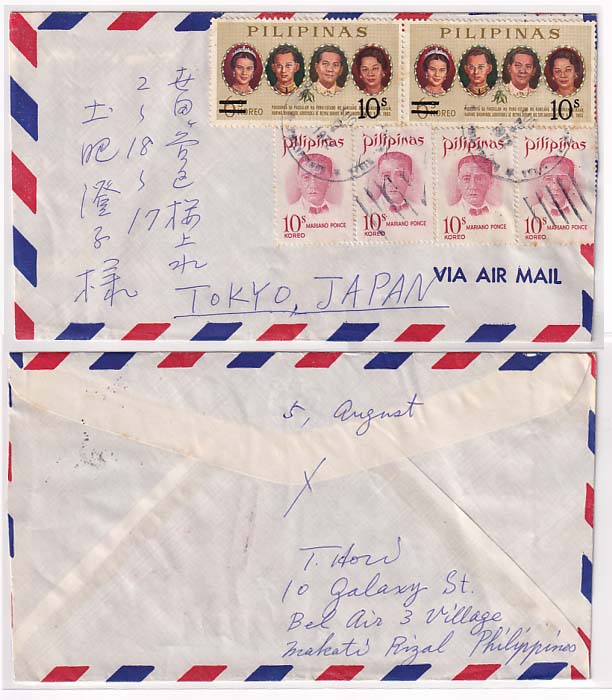 PILIPINAS
10s
KOREO
PILIPINAS
10s
KOREO
pilipinas
10s MARIANO PONCE
KOREO
pilipinas
10s MARIANO PONCE
KOREO
pilipinas
10s MARIANO PONCE
KOREO
pilipinas
10s MARIANO PONCE
KOREO
世田谷区桜上水
2-18-17
土肥澄子様
VIA AIR MAIL
TOKYO, JAPAN
5, August
X
T. Hori
10 Galaxy St.
Bel Air 3 Village
Makati Rizal Philippines